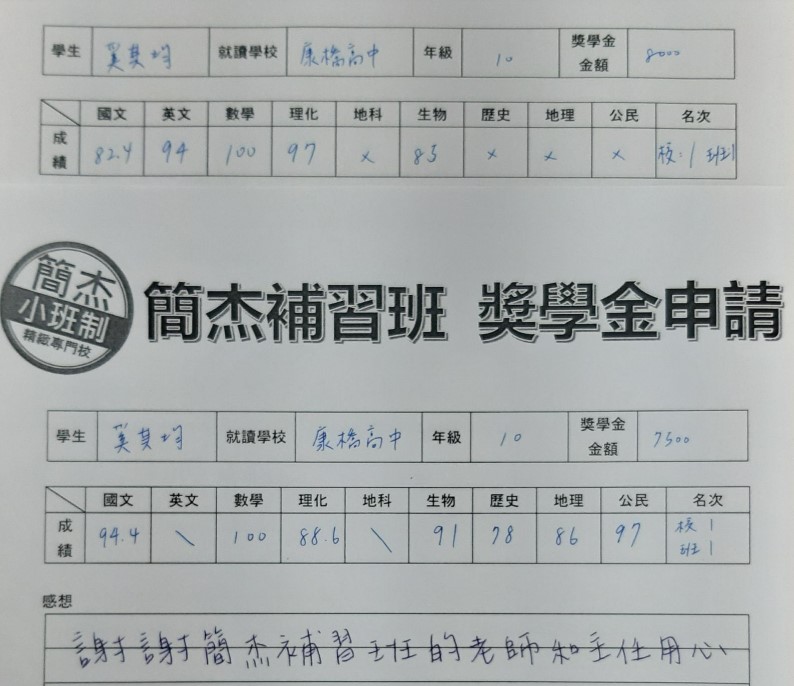 學生 奚其均 就讀學校 康橋高中 年級 10 獎學金金額 8000
國文 英文 數學 理化 地科 生物 歷史 地理 公民 名次
成績 82.4 94 100 97 x 85 x x x 校:1 班1
簡杰
小班制
精緻專門校
簡杰補習班 獎學金申請
學生 奚其均 就讀學校 康橋高中 年級 10 獎學金金額 7500
國文 英文 數學 理化 地科 生物 歷史 地理 公民 名次
成績 94.4 \ 100 88.6 \ 91 78 86 97 校1 班1
感想
謝謝簡杰補習班的老師和主任用心